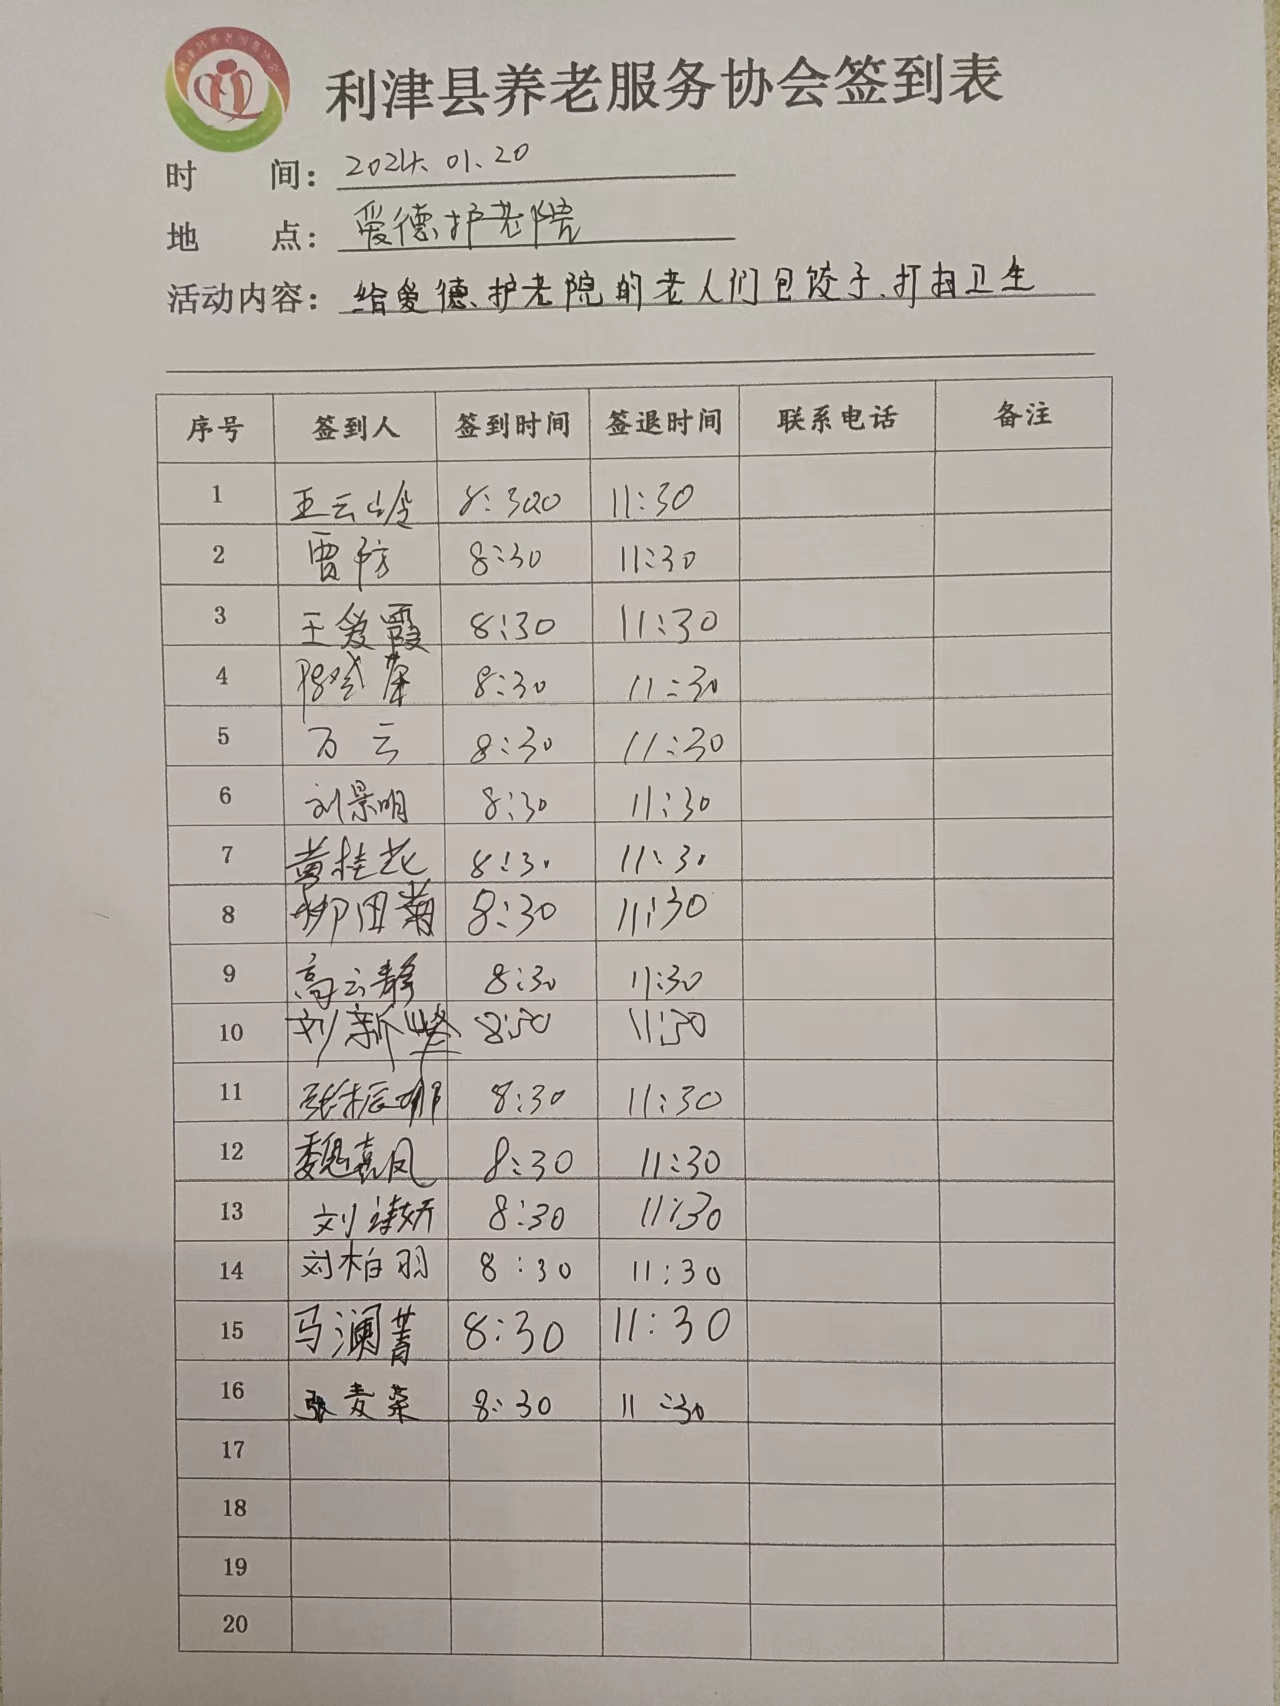 利津县养老服务协会
利津县养老服务协会签到表
时 间： 2024.01.20
地 点： 爱德护老院
活动内容： 给爱德护老院的老人们包饺子、打扫卫生
序号 签到人 签到时间 签退时间 联系电话 备注
1 王云岭 8:300 11:30
2 贾芳 8:30 11:30
3 王爱霞 8:30 11:30
4 8:30 11:30
5 万云 8:30 11:30
6 刘景明 8:30 11:30
7 黄桂花 8:30 11:30
8 柳田菊 8:30 11:30
9 高云静 8:30 11:30
10 刘新峰 8:30 11:30
11 张振娜 8:30 11:30
12 魏嘉凤 8:30 11:30
13 刘 8:30 11:30
14 刘柏羽 8:30 11:30
15 马澜菁 8:30 11:30
16 张麦荣 8:30 11:30
17
18
19
20